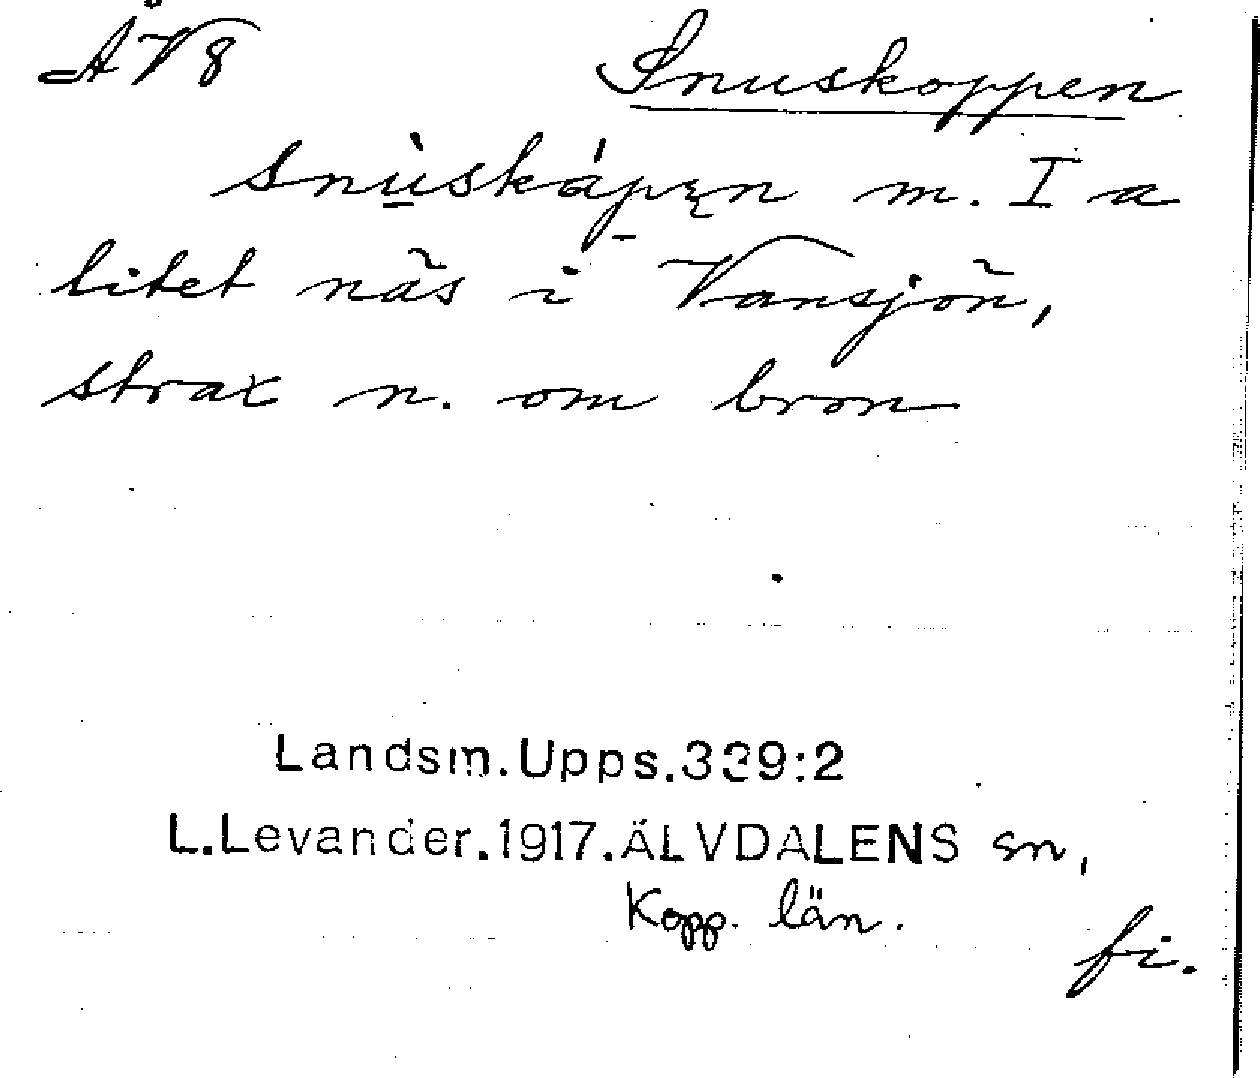 ÅV8 Snuskoppen
snùskápęn m. I a
litet näs i Vansjön,
strax n. om bron
Landsm.Upps.339:2
L.Levander.1917.ÄLVDALENS sn,
Kopp. län.
fi.